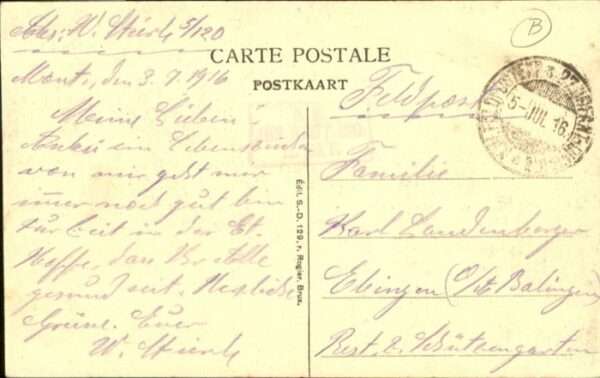 Abs: W. Stierle 5/120
CARTE POSTALE
POSTKAART
den 3.7.1916
Meine Lieben!
ein Lebenszeichen
von mir geht mir
immer noch gut bin
zur Zeit in der Et.
Hoffe, dass Ihr Alle
gesund seit. Herzliche
Grüsse Euer
W. Stierle
Edit. S.-D. 129, r. Rogier, Brux.
B
5-JUL.16
Feldpost
Familie
Karl Landenberger
Ebingen (O/A Balingen)
Rest. z. Schützengarten